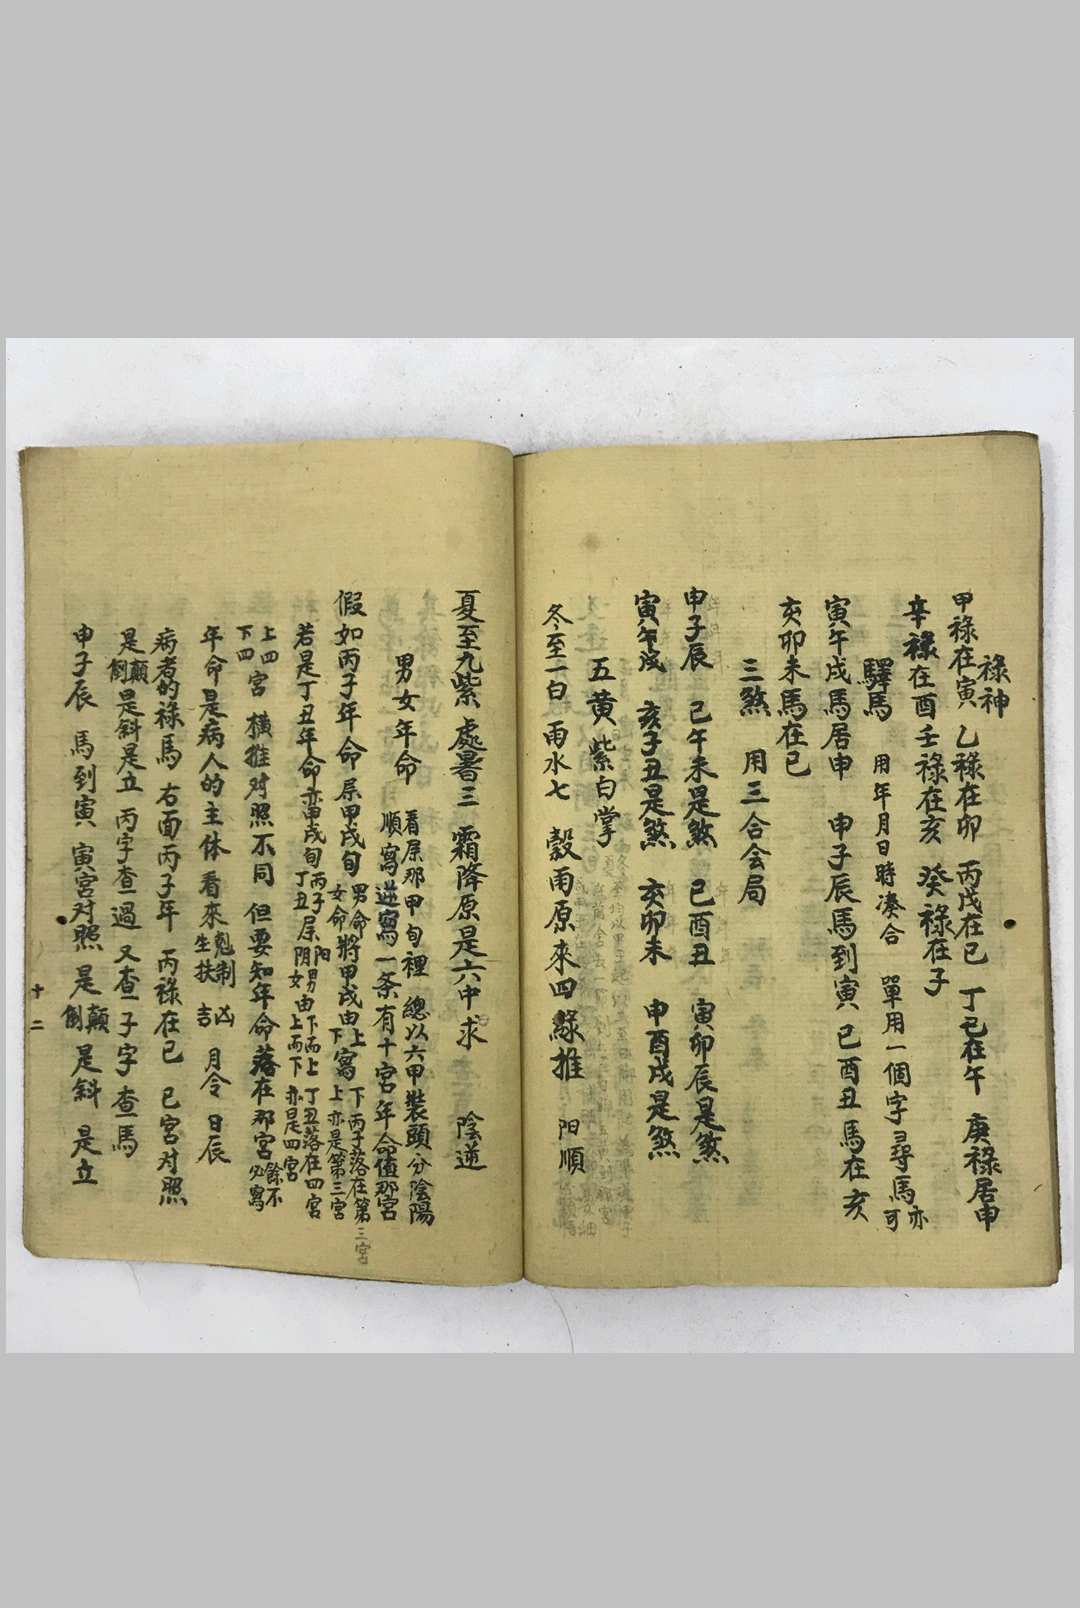 祿神
甲祿在寅 乙祿在卯 丙戊在巳 丁己在午 庚祿居申
辛祿在酉 壬祿在亥 癸祿在子
驛馬 用年月日時湊合 單用一個字尋馬亦可
寅午戌馬居申 申子辰馬到寅 巳酉丑馬在亥
亥卯未馬在巳
三煞 用三合会局
申子辰 巳午未是煞 巳酉丑 寅卯辰是煞
寅午戌 亥子丑是煞 亥卯未 申酉戌是煞
五黄 紫白掌
冬至一白 雨水七 穀雨原來四綠推 阳順
夏至九紫 處暑三 霜降原是六中求 陰逆
男女年命 看屈那甲旬裡 總以六甲裝頭分陰陽
順寫逆寫一条有十宮年命值那宮
假如丙子年命屈甲戌旬 男命女命將甲戌由上下寫 下丙子落在第三宮 上亦是第三宮
若是丁丑年命亦甲戌旬 丙子丁丑屈阳阴男女由下而上上而下 丁丑落在四宮 亦是四宮
上四下四宮 橫推对照不同 但要知年命落在那宮 餘不必寫
年命是病人的主休看來 剋制生扶 凶吉 月令 日辰
病者的祿馬 右面丙子年 丙祿在巳 巳宮对照
是顛倒是斜是立 丙字查過 又查子字 查馬
申子辰 馬到寅 寅宮对照 是顛倒 是斜 是立
十二